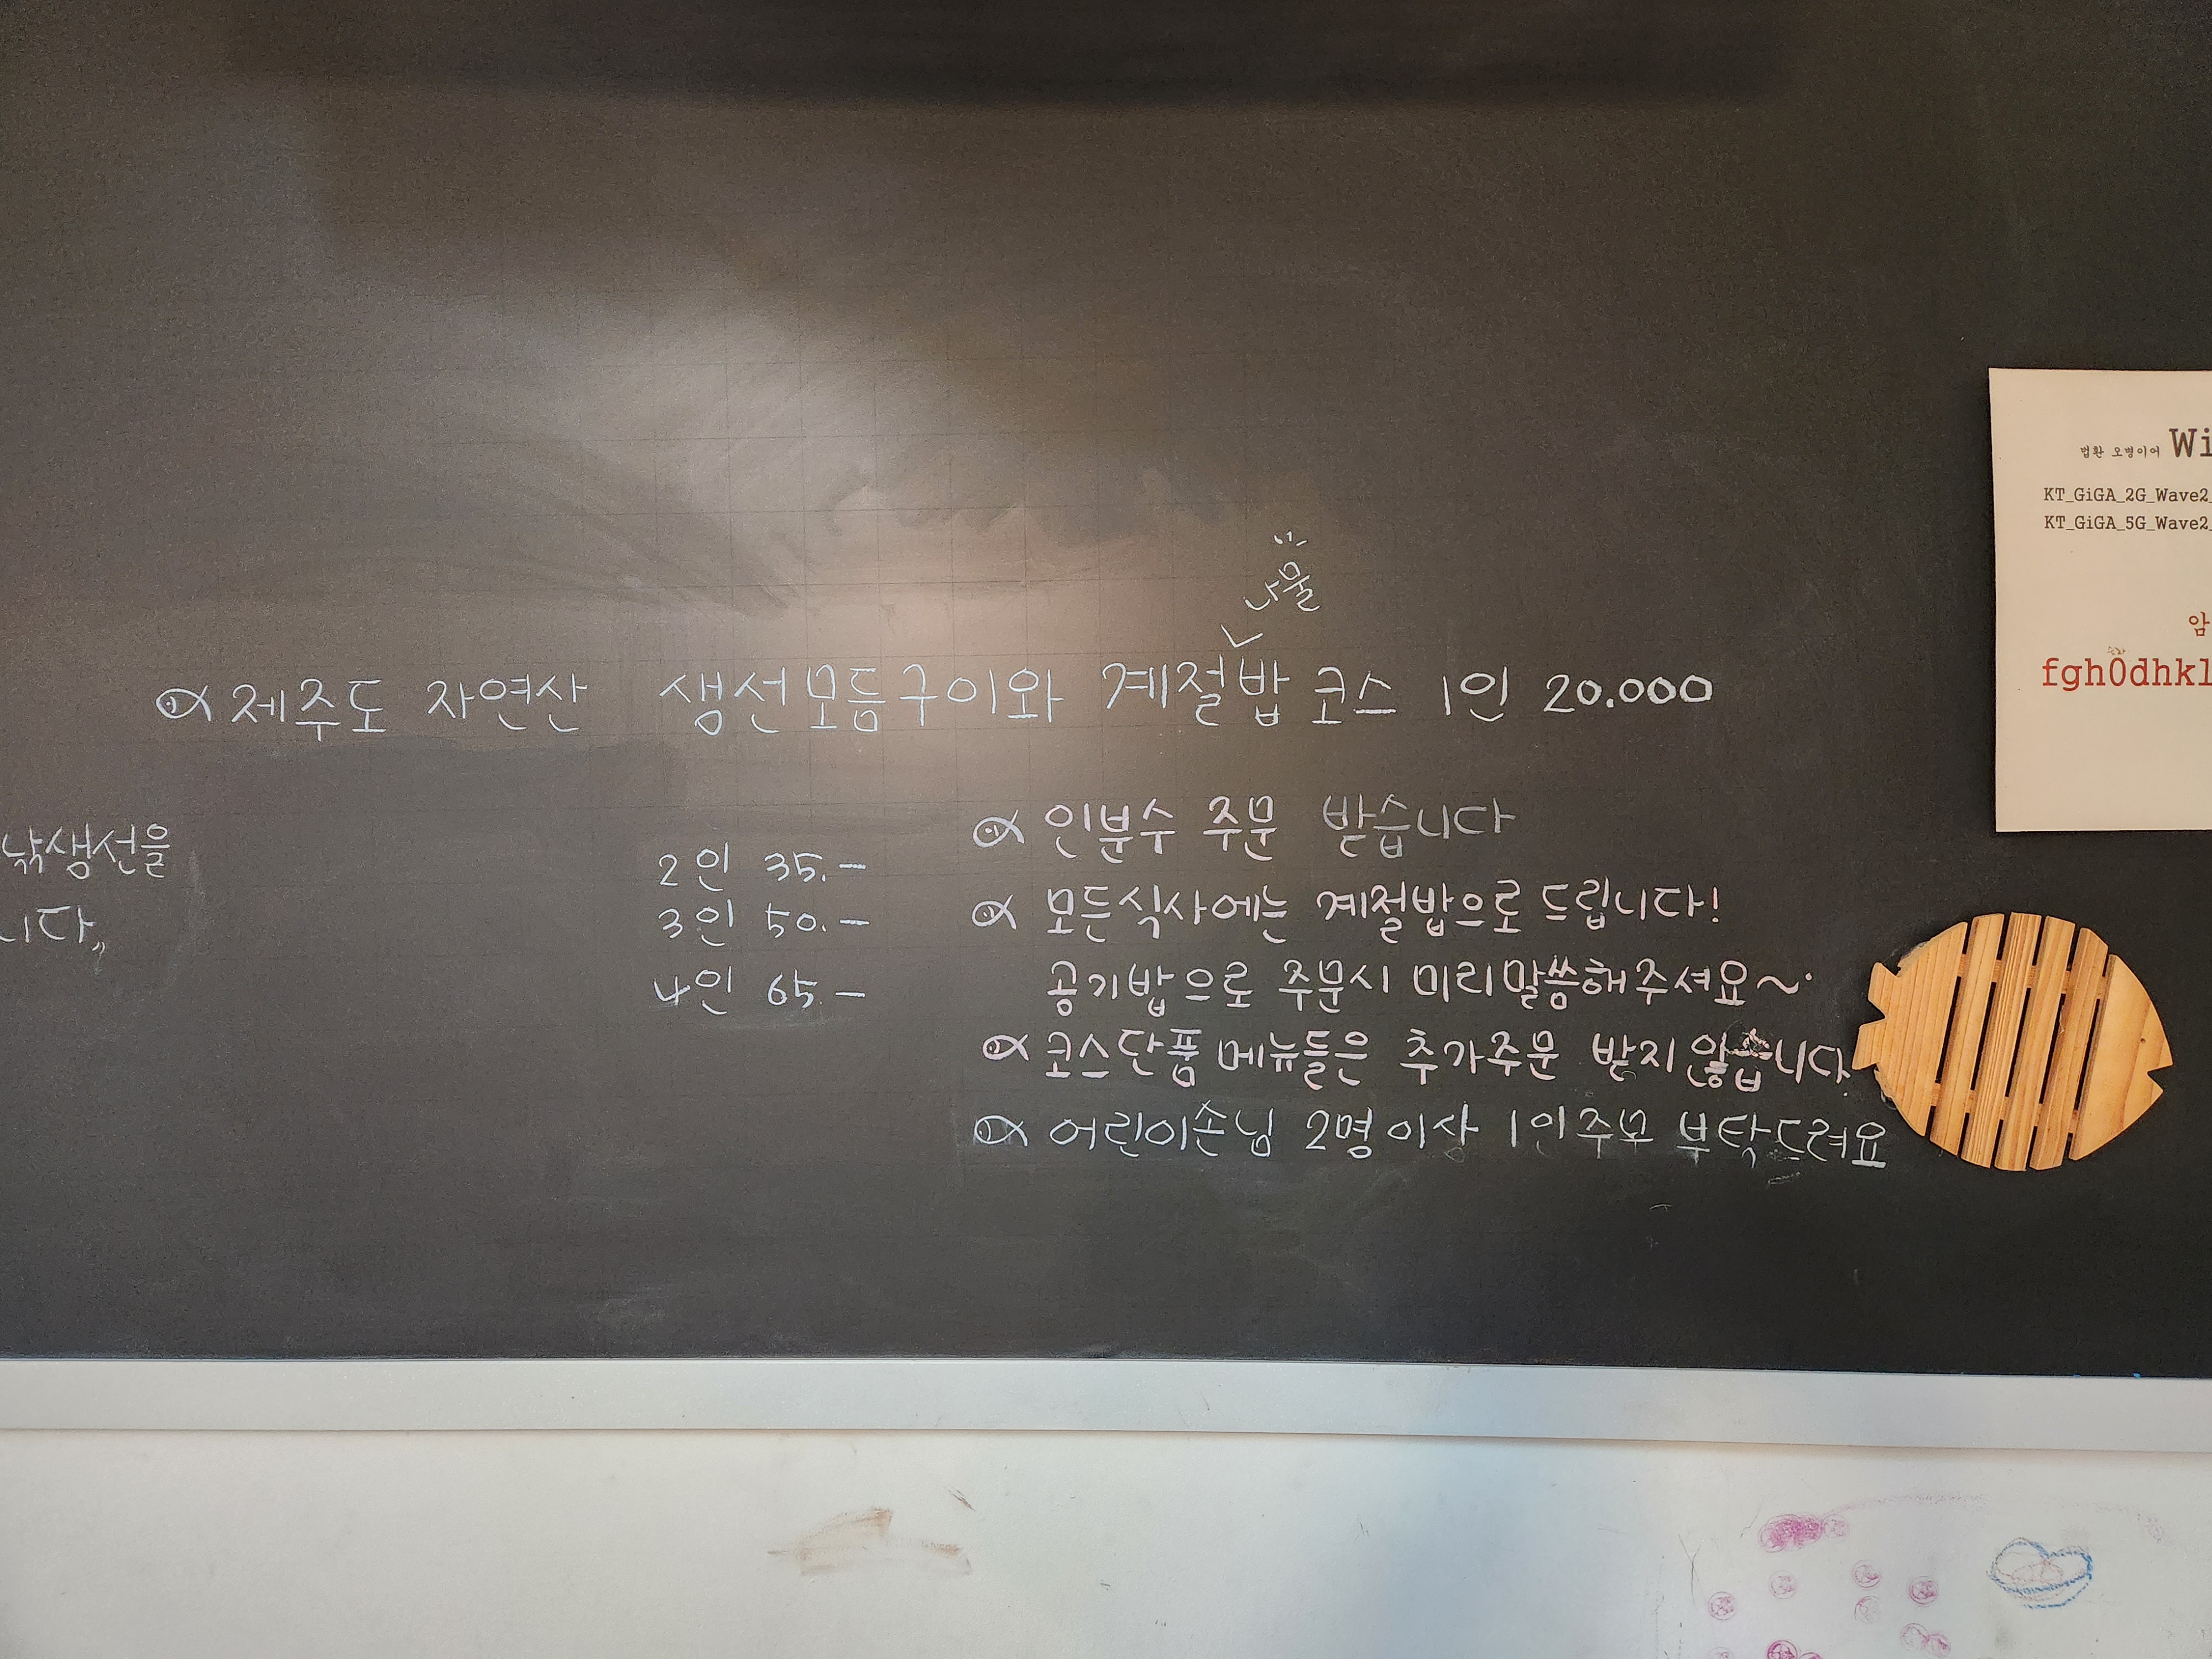 나물
제주도 자연산 생선모듬구이와 계절밥 코스 1인 20.000
낚생선을
니다,,
2인 35.-
3인 50.-
4인 65.-
인분수 주문 받습니다
모든식사에는 계절밥으로 드립니다!
공기밥으로 주문시 미리말씀해주셔요~
코스단품 메뉴들은 추가주문 받지않습니다.
어린이손님 2명이상 1인주문 부탁드려요
법환 오병이어 Wi
KT_GiGA_2G_Wave2_
KT_GiGA_5G_Wave2_
암
숫자
fgh0dhkl